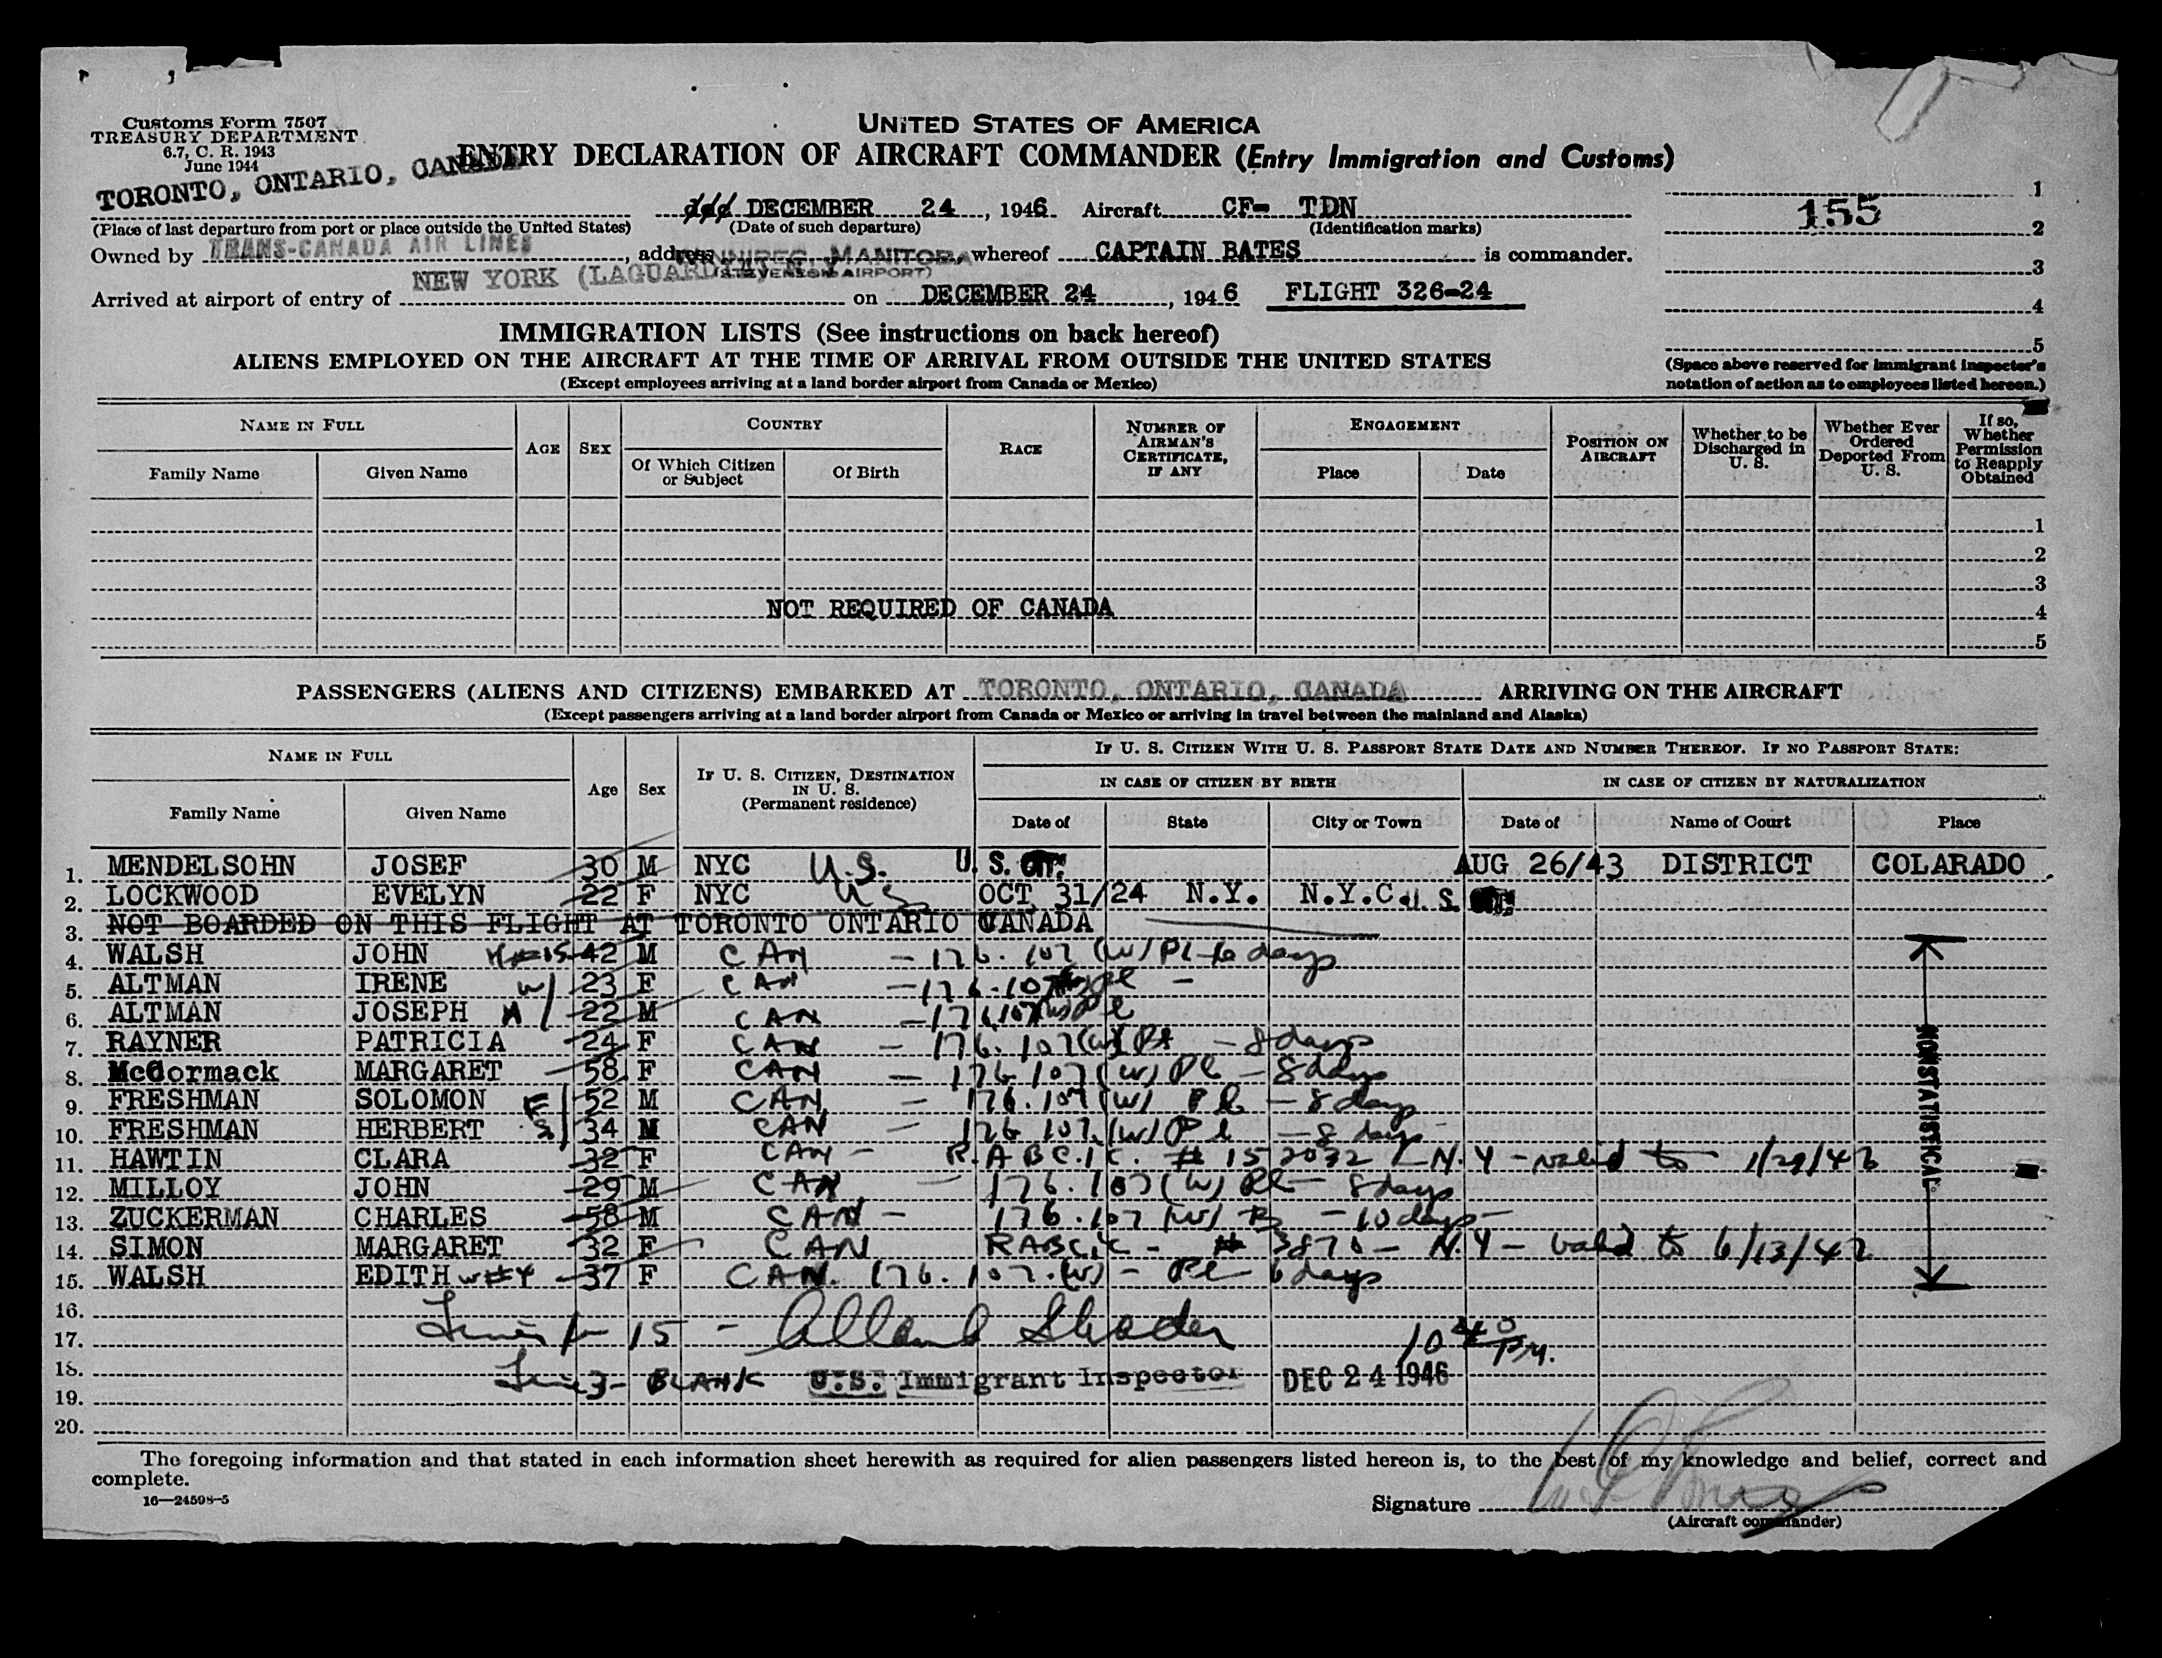 Customs Form 7507
TREASURY DEPARTMENT
6.7, C. R. 1943
June 1944
UNITED STATES OF AMERICA
ENTRY DECLARATION OF AIRCRAFT COMMANDER (Entry Immigration and Customs)
TORONTO, ONTARIO, CANADA
DECEMBER 24, 1946 Aircraft CF- TDN
1
155
(Place of last departure from port or place outside the United States) (Date of such departure) (Identification marks)
2
Owned by TRANS-CANADA AIR LINES, address WINNIPEG, MANITOBA, whereof CAPTAIN BATES is commander.
(STEVENSON AIRPORT)
3
Arrived at airport of entry of NEW YORK (LAGUARDIA) on DECEMBER 24, 1946 FLIGHT 326-24
4
5
IMMIGRATION LISTS (See instructions on back hereof)
ALIENS EMPLOYED ON THE AIRCRAFT AT THE TIME OF ARRIVAL FROM OUTSIDE THE UNITED STATES
(Except employees arriving at a land border airport from Canada or Mexico)
(Space above reserved for immigrant inspector's
notation of action as to employees listed hereon.)
NAME IN FULL
Family Name Given Name
AGE SEX
COUNTRY
Of Which Citizen or Subject Of Birth
RACE
NUMBER OF AIRMAN'S CERTIFICATE, IF ANY
ENGAGEMENT
Place Date
POSITION ON AIRCRAFT
Whether to be Discharged in U. S.
Whether Ever Ordered Deported From U. S.
If so, Whether Permission to Reapply Obtained
1
2
3
NOT REQUIRED OF CANADA 4
5
PASSENGERS (ALIENS AND CITIZENS) EMBARKED AT TORONTO, ONTARIO, CANADA ARRIVING ON THE AIRCRAFT
(Except passengers arriving at a land border airport from Canada or Mexico or arriving in travel between the mainland and Alaska)
NAME IN FULL
Family Name Given Name
Age Sex
IF U. S. CITIZEN, DESTINATION IN U. S.
(Permanent residence)
IF U. S. CITIZEN WITH U. S. PASSPORT STATE DATE AND NUMBER THEREOF. IF NO PASSPORT STATE:
IN CASE OF CITIZEN BY BIRTH IN CASE OF CITIZEN BY NATURALIZATION
Date of State City or Town Date of Name of Court Place
1. MENDELSOHN JOSEF 30 M NYC U.S. U. S. CIT. AUG 26/43 DISTRICT COLARADO
2. LOCKWOOD EVELYN 22 F NYC U.S. OCT 31/24 N.Y. N.Y.C. U. S. CIT.
3. NOT BOARDED ON THIS FLIGHT AT TORONTO ONTARIO CANADA
4. WALSH JOHN H#15 42 M CAN - 176.107 (W) Pl - 6 days
5. ALTMAN IRENE W 23 F CAN - 176.107 Pl -
6. ALTMAN JOSEPH H 22 M CAN - 176.107 (W) Pl
7. RAYNER PATRICIA 24 F CAN - 176.107 (W) Pl - 8 days
8. McCormack MARGARET 58 F CAN - 176.107 (W) Pl - 8 days
9. FRESHMAN SOLOMON F 52 M CAN - 176.107 (W) Pl - 8 days
10. FRESHMAN HERBERT S 34 M CAN - 176.107 (W) Pl - 8 days
11. HAWTIN CLARA 32 F CAN - R.A.B.C.I.C. # 152032 - N.Y - valid to 1/29/47
12. MILLOY JOHN 29 M CAN - 176.107 (W) Pl - 8 days
13. ZUCKERMAN CHARLES 58 M CAN - 176.107 (W) - 10 days -
14. SIMON MARGARET 32 F CAN RABCIC - # 3870 - N.Y - valid to 6/13/47
15. WALSH EDITH W#4 37 F CAN. 176.107.(W) - Pl 6 days
NONSTATISTICAL
16.
17. Lines 1- 15 - 10 40 P.M.
18. Line 3 - BLANK U.S. Immigrant Inspector DEC 24 1946
19.
20.
The foregoing information and that stated in each information sheet herewith as required for alien passengers listed hereon is, to the best of my knowledge and belief, correct and
complete.
16—24598-5
Signature
(Aircraft commander)